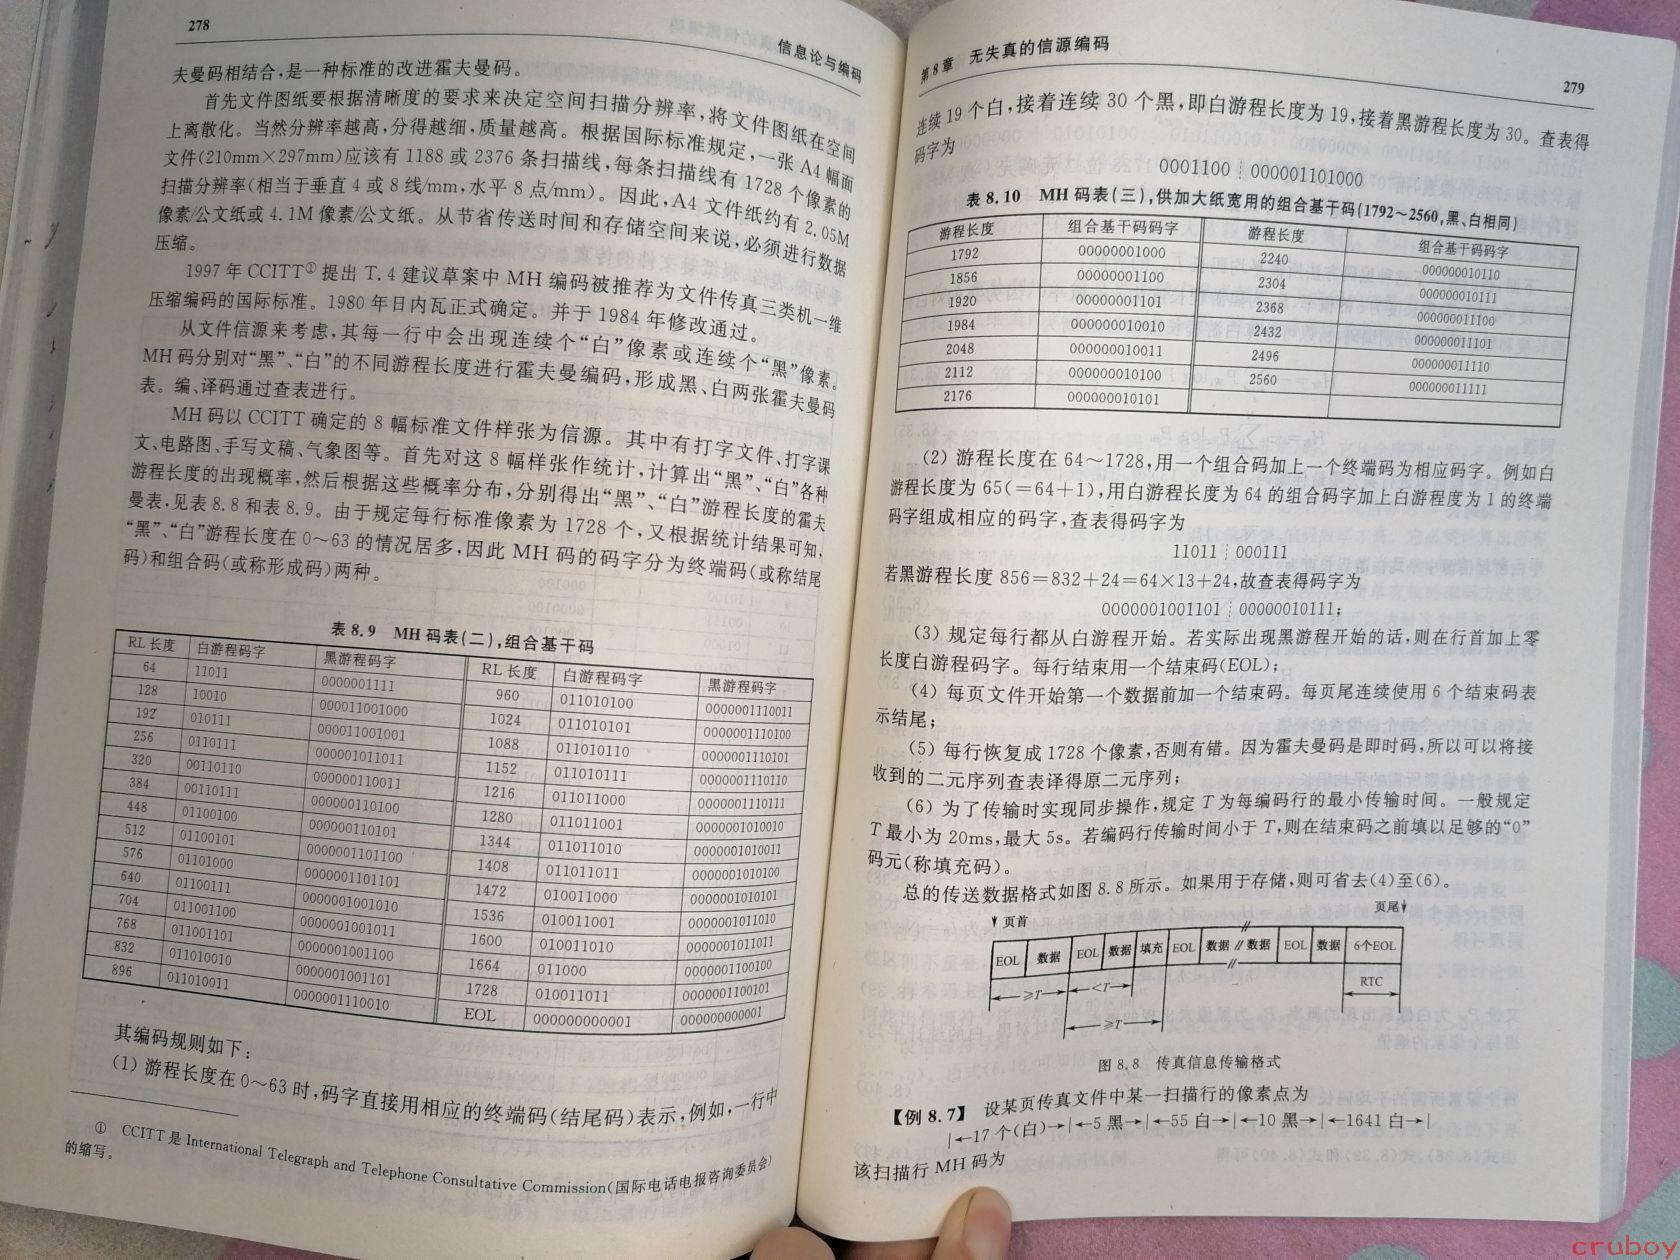 278
信息论与编码
夫曼码相结合,是一种标准的改进霍夫曼码。
首先文件图纸要根据清晰度的要求来决定空间扫描分辨率,将文件图纸在空间
上离散化。当然分辨率越高,分得越细,质量越高。根据国际标准规定,一张 A4 幅面
文件(210mm×297mm)应该有 1188 或 2376 条扫描线,每条扫描线有 1728 个像素的
扫描分辨率(相当于垂直 4 或 8 线/mm,水平 8 点/mm)。因此,A4 文件纸约有 2.05M
像素/公文纸或 4.1M 像素/公文纸。从节省传送时间和存储空间来说,必须进行数据
压缩。
1997 年 CCITT① 提出 T.4 建议草案中 MH 编码被推荐为文件传真三类机一维
压缩编码的国际标准。1980 年日内瓦正式确定。并于 1984 年修改通过。
从文件信源来考虑,其每一行中会出现连续个“白”像素或连续个“黑”像素。
MH 码分别对“黑”、“白”的不同游程长度进行霍夫曼编码,形成黑、白两张霍夫曼码
表。编、译码通过查表进行。
MH 码以 CCITT 确定的 8 幅标准文件样张为信源。其中有打字文件、打字课
文、电路图、手写文稿、气象图等。首先对这 8 幅样张作统计,计算出“黑”、“白”各种
游程长度的出现概率,然后根据这些概率分布,分别得出“黑”、“白”游程长度的霍夫
曼表,见表 8.8 和表 8.9。由于规定每行标准像素为 1728 个,又根据统计结果可知,
“黑”、“白”游程长度在 0～63 的情况居多,因此 MH 码的码字分为终端码(或称结尾
码)和组合码(或称形成码)两种。
表 8.9 MH 码表(二),组合基干码
RL 长度 白游程码字 黑游程码字 RL 长度 白游程码字 黑游程码字
64 11011 0000001111 960 011010100 0000001110011
128 10010 000011001000 1024 011010101 0000001110100
192 010111 000011001001 1088 011010110 0000001110101
256 0110111 000001011011 1152 011010111 0000001110110
320 00110110 000000110011 1216 011011000 0000001110111
384 00110111 000000110100 1280 011011001 0000001010010
448 01100100 000000110101 1344 011011010 0000001010011
512 01100101 0000001101100 1408 011011011 0000001010100
576 01101000 0000001101101 1472 010011000 0000001010101
640 01100111 0000001001010 1536 010011001 0000001011010
704 011001100 0000001001011 1600 010011010 0000001011011
768 011001101 0000001001100 1664 011000 0000001100100
832 011010010 0000001001101 1728 010011011 0000001100101
896 011010011 0000001110010 EOL 000000000001 000000000001
其编码规则如下:
(1) 游程长度在 0～63 时,码字直接用相应的终端码(结尾码)表示,例如,一行中
① CCITT 是 International Telegraph and Telephone Consultative Commission(国际电话电报咨询委员会)
的缩写。
第 8 章 无失真的信源编码
279
连续 19 个白,接着连续 30 个黑,即白游程长度为 19,接着黑游程长度为 30。查表得
码字为
0001100 ┊ 000001101000
表 8.10 MH 码表(三),供加大纸宽用的组合基干码(1792～2560,黑、白相同)
游程长度 组合基干码码字 游程长度 组合基干码码字
1792 00000001000 2240 000000010110
1856 00000001100 2304 000000010111
1920 00000001101 2368 000000011100
1984 000000010010 2432 000000011101
2048 000000010011 2496 000000011110
2112 000000010100 2560 000000011111
2176 000000010101
(2) 游程长度在 64～1728,用一个组合码加上一个终端码为相应码字。例如白
游程长度为 65(=64+1),用白游程长度为 64 的组合码字加上白游程度为 1 的终端
码字组成相应的码字,查表得码字为
11011 ┊ 000111
若黑游程长度 856=832+24=64×13+24,故查表得码字为
0000001001101 ┊ 00000010111;
(3) 规定每行都从白游程开始。若实际出现黑游程开始的话,则在行首加上零
长度白游程码字。每行结束用一个结束码(EOL);
(4) 每页文件开始第一个数据前加一个结束码。每页尾连续使用 6 个结束码表
示结尾;
(5) 每行恢复成 1728 个像素,否则有错。因为霍夫曼码是即时码,所以可以将接
收到的二元序列查表译得原二元序列;
(6) 为了传输时实现同步操作,规定 T 为每编码行的最小传输时间。一般规定
T 最小为 20ms,最大 5s。若编码行传输时间小于 T,则在结束码之前填以足够的“0”
码元(称填充码)。
总的传送数据格式如图 8.8 所示。如果用于存储,则可省去(4)至(6)。
页首 页尾
EOL 数据 EOL 数据 填充 EOL 数据 数据 EOL 数据 6个EOL
≥T <T RTC
≥T
图 8.8 传真信息传输格式
【例 8.7】 设某页传真文件中某一扫描行的像素点为
|←17 个(白)→|←5 黑→|←55 白→|←10 黑→|←1641 白→|
该扫描行 MH 码为
cruboy